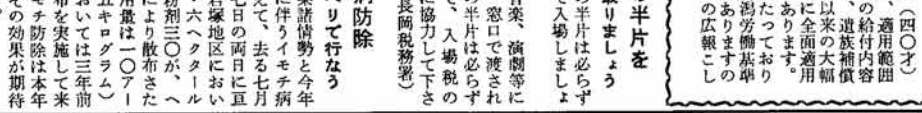 (四〇才)
、適用範囲
の給付内容
、遺族補償
以来の大幅
あります。
に全面適用
たっており
潟労働基準
ありますの
の広報こし
の半片を
取りましょう
の半片は必らず
て入場しましょ
音楽、演劇等に
、窓口で渡され
の半片は必らず
で、入場税の
に協力して下さ
長岡税務署)
病防除
リで行なう
業諸情勢と今年
に伴うイモチ病
えて、去る七月
七日の両日に亘
塚地区におい
・六ヘクタール
粉剤三〇が、ヘ
により散布された
用量は一〇アー
五キログラム)
おいては三年前
布を実施して来
モチ防除は本年
その効果が期待